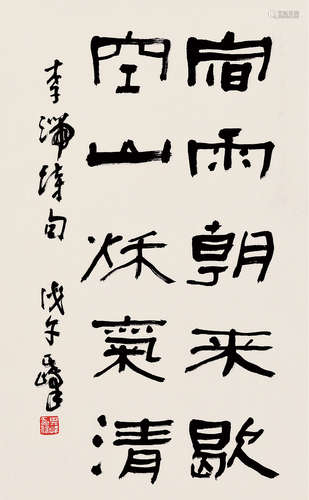 宿雨朝来歇
空山秋氣清
李端诗句 戊午 峰